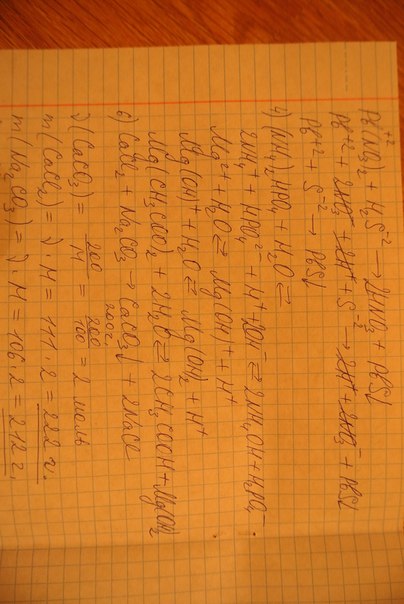 Pb⁺²(NO₃)₂ + H₂S⁻² → 2HNO₃ + PbS↓
Pb⁺² + 2NO₃⁻ + 2H⁺ + S⁻² → 2H⁺ + 2NO₃⁻ + PbS↓
Pb⁺² + S⁻² → PbS↓
4) (NH₄)₂HPO₄ + H₂O ⇄
2NH₄⁺ + HPO₄²⁻ + H⁺ + OH⁻ ⇄ 2NH₄OH + H₂PO₄⁻
Mg²⁺ + H₂O ⇄ Mg(OH)⁺ + H⁺
Mg(OH)⁺ + H₂O ⇄ Mg(OH)₂ + H⁺
Mg(CH₃COO)₂ + 2H₂O ⇄ 2CH₃COOH + Mg(OH)₂
6) CaCl₂ + Na₂CO₃ → CaCO₃↓ + 2NaCl
200г
ν(CaCO₃) = 200/M = 200/100 = 2 моль
m(CaCl₂) = ν · M = 111 · 2 = 222 г.
m(Na₂CO₃) = ν · M = 106 · 2 = 212 г.